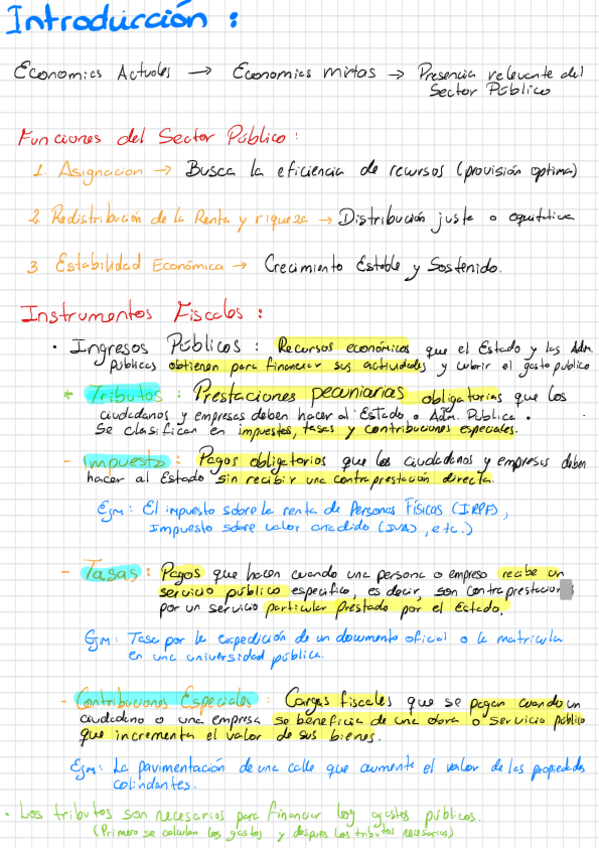 Introducción :
Economias Actuales → Economias mixtas → Presencia relevante del
Sector Público
Funciones del Sector Público :
1. Asignacion → Busca la eficiencia de recursos (provisión optima)
2. Redistribución de la Renta y riqueza → Distribución justa o equitativa
3 Estabilidad Económica → Crecimiento Estable y Sostenido.
Instrumentos Fiscales :
• Ingresos Públicos : Recursos económicos que el Estado y las Adm.
Públicas obtienen para financiar sus actividades y cubrir el gasto publico
* Tributos : Prestaciones pecuniarias obligatorias que los
ciudadanos y empresas deben hacer al Estado o Adm. Publica.
Se clasifican en impuestos, tasas y contribuciones especiales.
- Impuesto : Pagos obligatorios que los ciudadanos y empresas deben
hacer al Estado sin recibir una contraprestación directa.
Ejm: El impuesto sobre la renta de Personas Físicas (IRPF),
Impuesto sobre valor anadido (IVA), etc.)
- Tasas : Pagos que hacen cuando una persona o empresa recibe un
servicio público especifico, es decir, son contraprestaciones
por un servicio particular prestado por el Estado.
Ejm: Tasa por la expedición de un documento oficial o la matricula
en una universidad pública.
- Contribuciones Especiales : Cargas fiscales que se pagan cuando un
ciudadano o una empresa se beneficia de una obra o servicio público
que incrementa el valor de sus bienes.
Ejm: La pavimentación de una calle que aumente el valor de las propiedades
colindantes.
• Los tributos son necesarios para financiar los gastos públicos.
(Primero se calculan los gastos y despues los tributos necesarios)